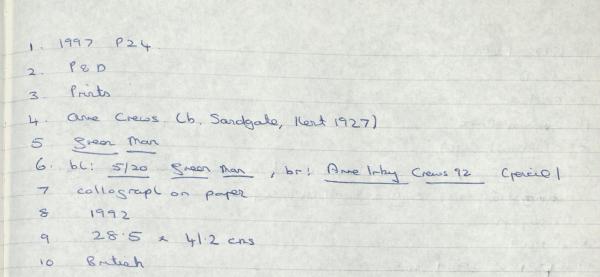 1. 1997 P24
2. P&D
3 Prints
4. Anne Crews (b. Sandgate, Kent 1927)
5 Green Man
6. bl: 5/20 Green Man, br: Anne Irby Crews 92 (pencil)
7 collograph on paper
8 1992
9 28.5 x 41.2 cms
10 British